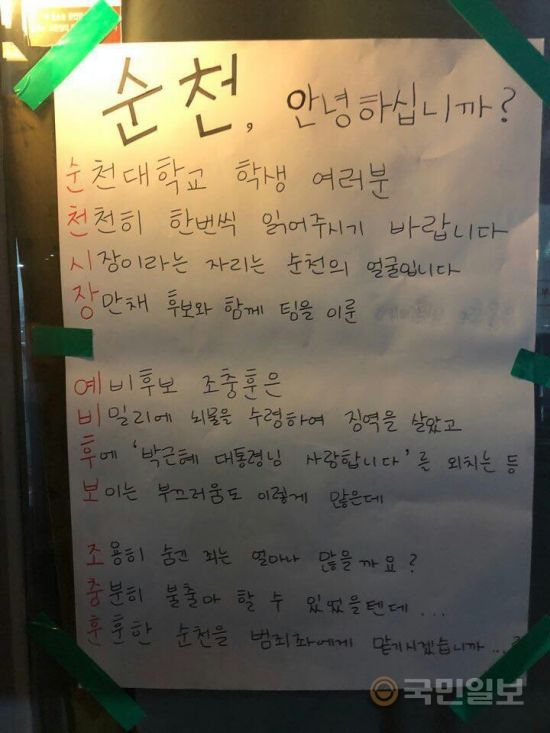 순천, 안녕하십니까?
순천대학교 학생 여러분
천천히 한번씩 읽어주시기 바랍니다
시장이라는 자리는 순천의 얼굴입니다
장만채 후보와 함께 팀을 이룬
예비후보 조충훈은
비밀리에 뇌물을 수령하여 징역을 살았고
후에 '박근혜 대통령님 사랑합니다'를 외치는 등
보이는 부끄러움도 이렇게 많은데
조용히 숨긴 죄는 얼마나 많을까요?
충분히 불출마 할 수 있었을텐데...
훈훈한 순천을 범죄자에게 맡기시겠습니까...?
국민일보